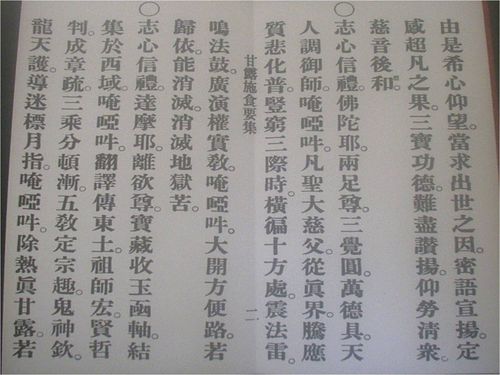 由是希心仰望。當求出世之因。密語宣揚。定
感超凡之果。三寶功德。難盡讚揚。仰勞清衆。
慈音後和。
○志心信禮。佛陀耶。兩足尊。三覺圓。萬德具。天
人調御師。唵啞吽。凡聖大慈父。從眞界。騰應
質悲化普。豎窮三際時。橫徧十方處。震法雷。
甘露施食要集 二
鳴法鼓。廣演權實教。唵啞吽。大開方便路。若
歸依。能消滅。消滅地獄苦。
○志心信禮。達摩耶。離欲尊。寶藏收。玉函軸。結
集於西域。唵啞吽。翻譯傳東土。祖師宏。賢哲
判。成章疏。三乘分頓漸。五教定宗趣。鬼神欽。
龍天護。導迷標月指。唵啞吽。除熱眞甘露。若